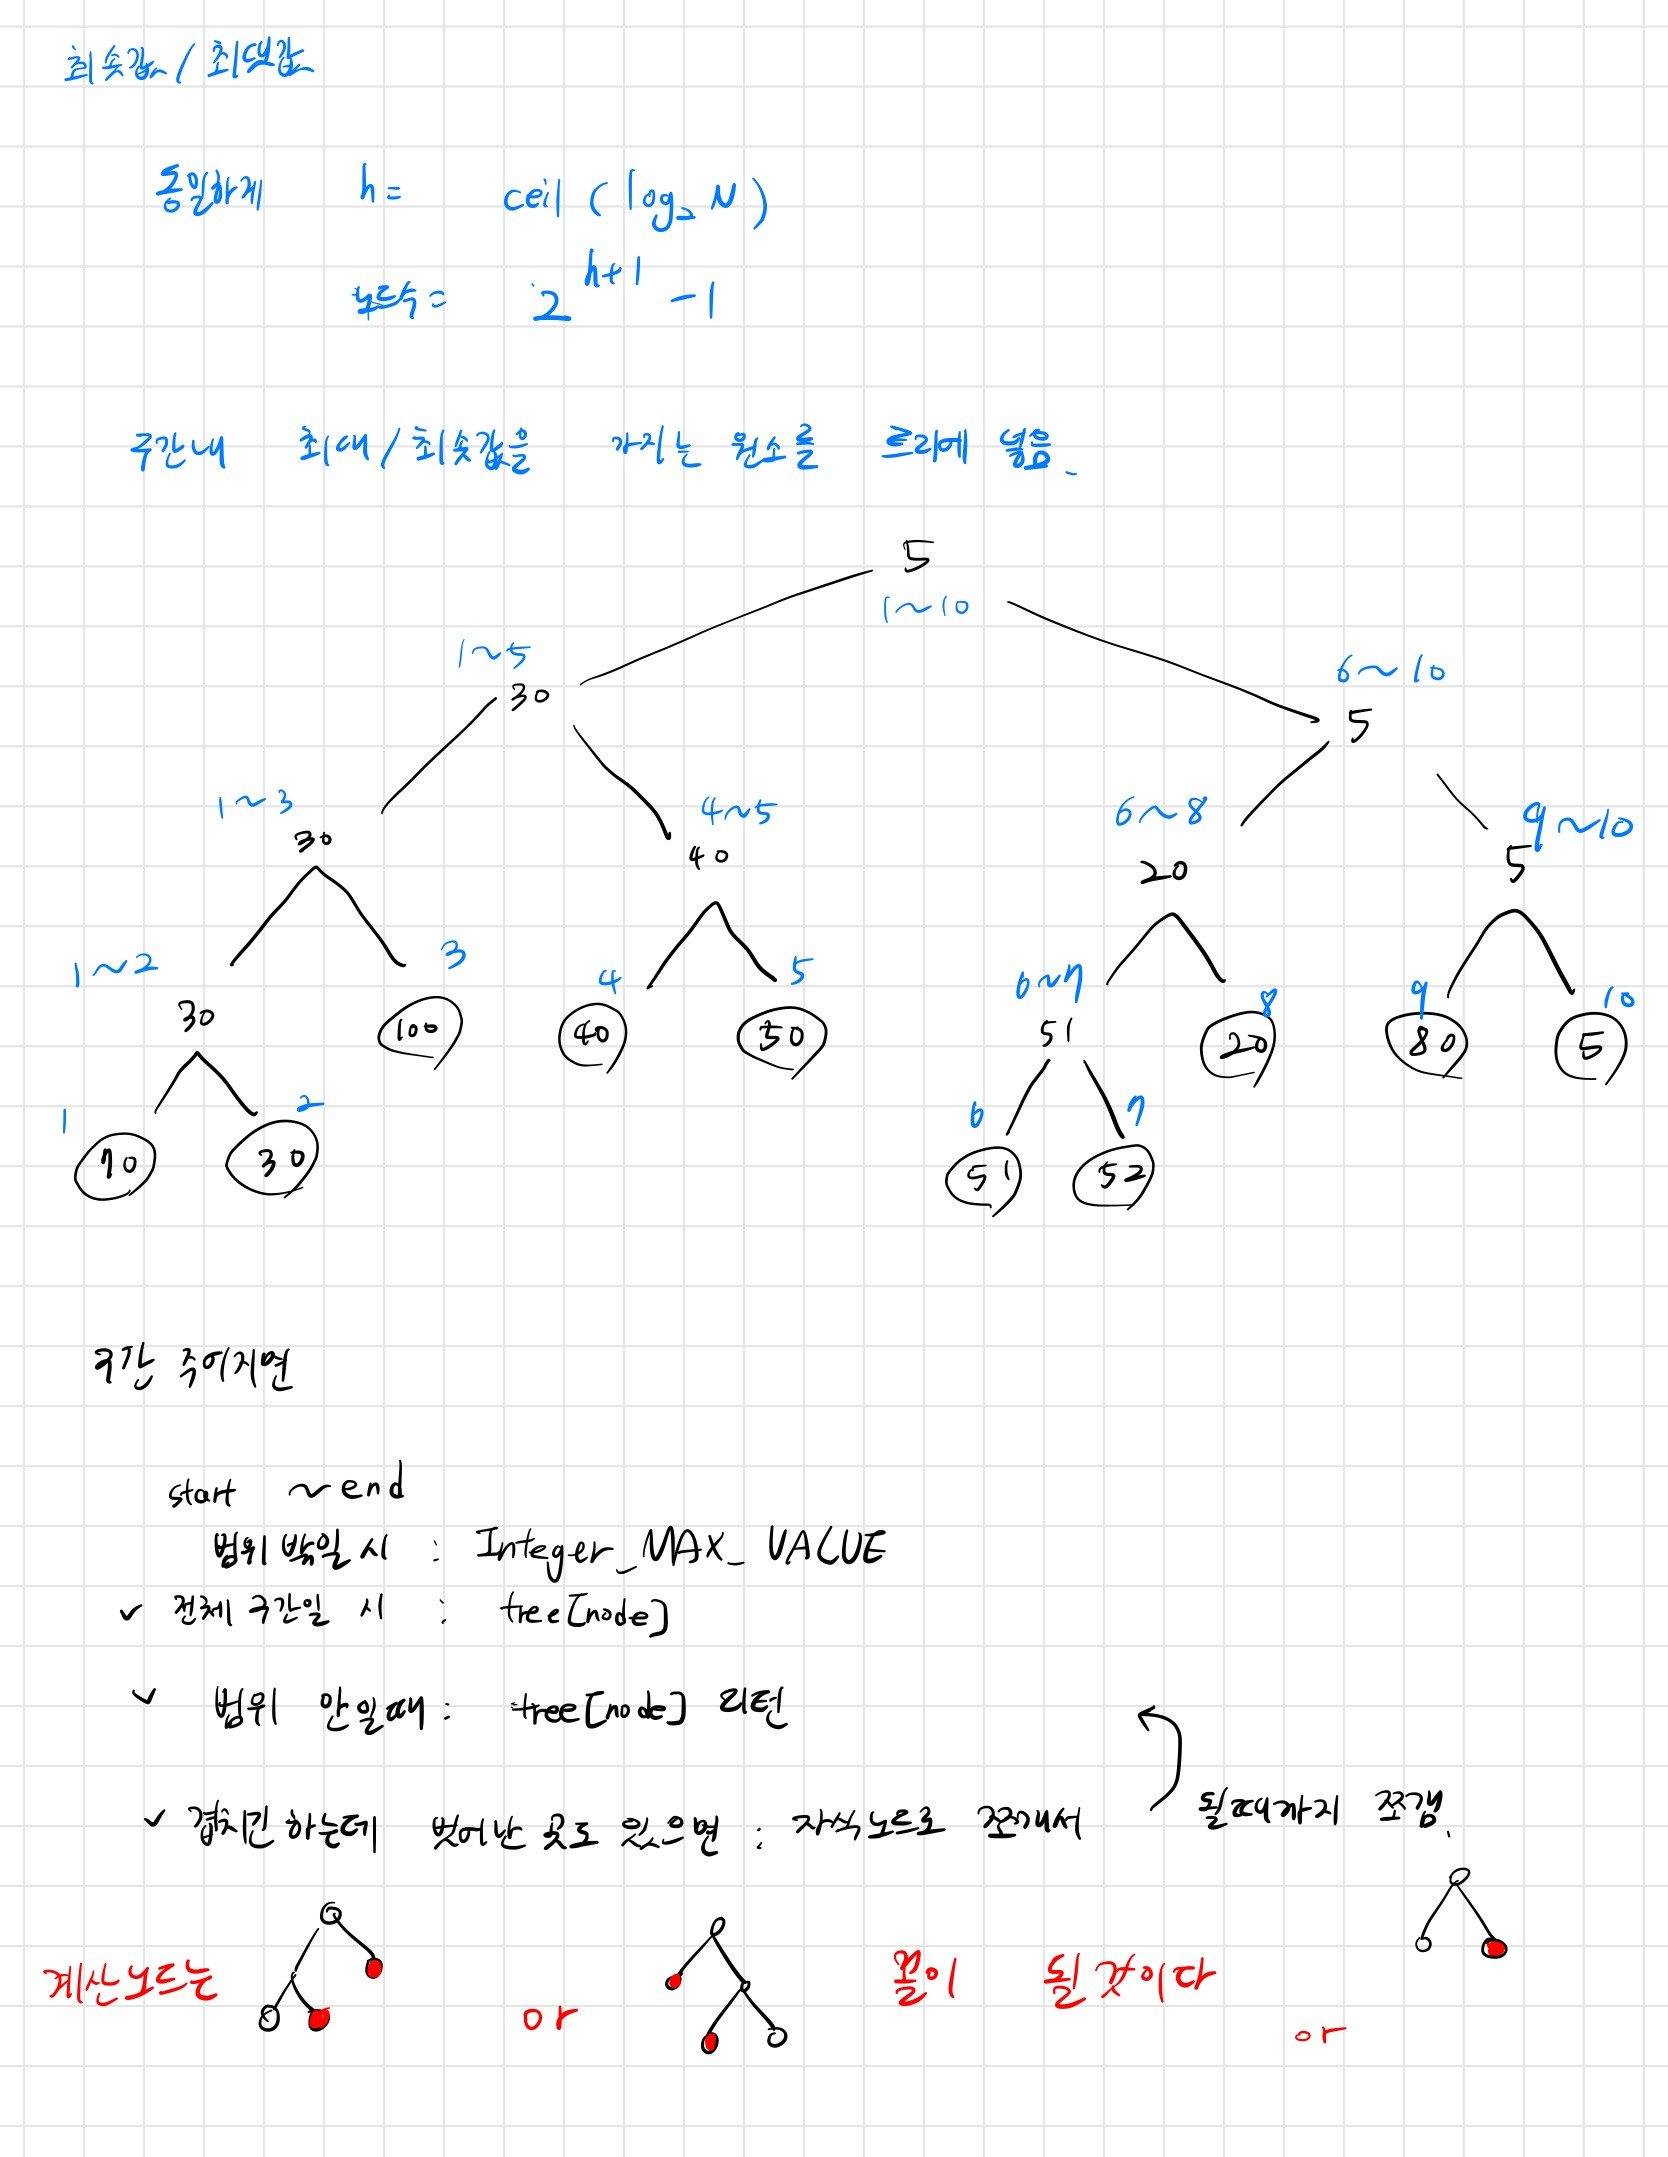 최솟값 / 최댓값
동일하게 h = ceil ( log₂ N )
노드수 = 2^(h+1) - 1
구간내 최대/최솟값을 가지는 원소를 트리에 넣음.
5
1~10
1~5
30
6~10
5
1~3
30
4~5
40
6~8
20
9~10
5
1~2
30
3
100
4
40
5
50
6~7
51
8
20
9
80
10
5
1
70
2
30
6
51
7
52
구간 주어지면
start ~ end
범위 밖일 시 : Integer_MAX_VALUE
✓ 전체 구간일 시 : tree[node]
✓ 범위 안일때 : tree[node] 리턴
✓ 겹치긴 하는데 벗어난 곳도 있으면 : 자식노드로 쪼개서 될때까지 쪼갬.
계산노드는 or 꼴이 될것이다
or